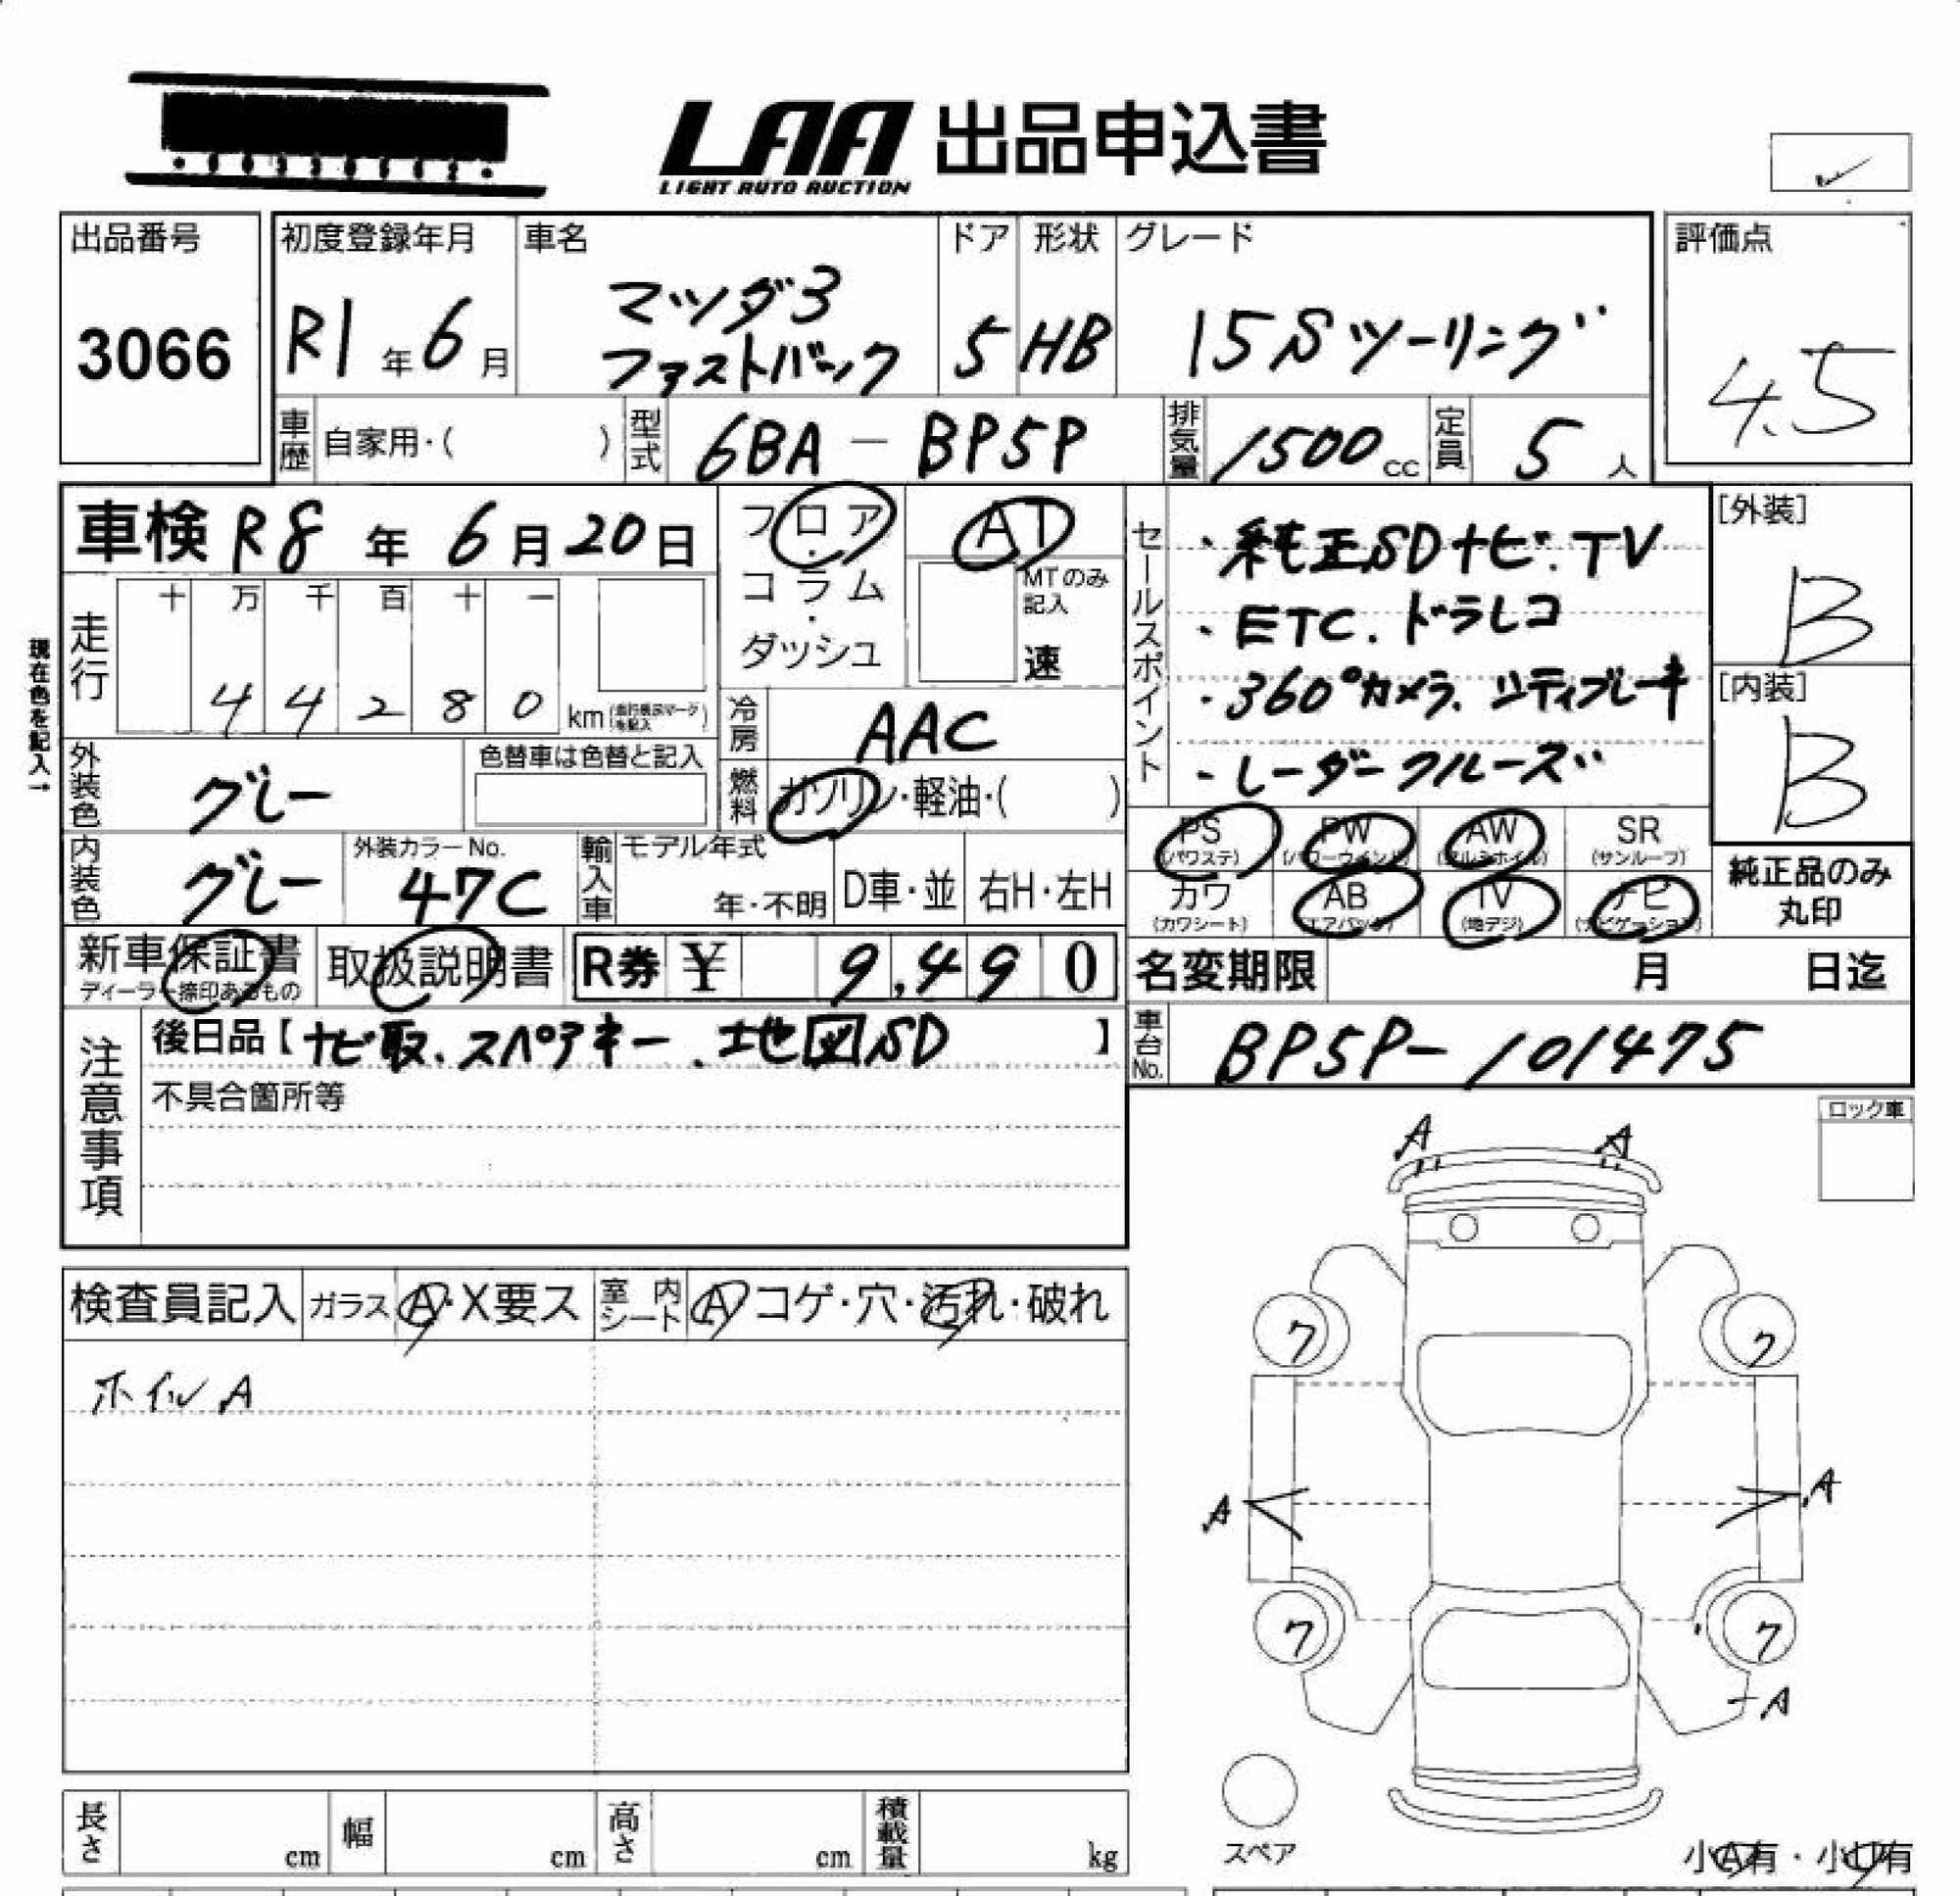 LAA 出品申込書
LIGHT AUTO AUCTION
出品番号
3066
初度登録年月
R1年6月
車名
マツダ3
ファストバック
ドア
5
形状
HB
グレード
15Sツーリング
評価点
4.5
車歴 自家用・( )
型式 6BA-BP5P
排気量 1500cc
定員 5人
車検 R8年6月20日
フロア・コラム・ダッシュ
AT
MTのみ記入
速
セールスポイント
・純正SDナビ.TV
・ETC.ドラレコ
・360°カメラ.シティブレーキ
・レーダークルーズ
[外装]
B
[内装]
B
現在色を記入→
走行
十 万 千 百 十 一
4 4 2 8 0 km(走行表示マークを記入)
冷房 AAC
燃料 ガソリン・軽油・( )
外装色 グレー
色替車は色替と記入
内装色 グレー
外装カラーNo.
47C
輸入車 モデル年式
年・不明 D車・並 右H・左H
PS(パワステ) PW(パワーウインド) AW(アルミホイル) SR(サンルーフ)
カワ(カワシート) AB(エアバッグ) TV(地デジ) ナビ(ナビゲーション)
純正品のみ丸印
新車保証書
ディーラー捺印あるもの
取扱説明書
R券 ¥ 9,490
名変期限 月 日迄
注意事項
後日品【ナビ取.スペアキー.地図SD】
不具合箇所等
車台No. BP5P-101475
ロック車
検査員記入 ガラス A・X要ス 室内シート A コゲ・穴・汚れ・破れ
ホイルA
A A
ク ク
A A
ク ク
A
スペア
小A有・小U有
長さ cm 幅 cm 高さ cm 積載量 kg